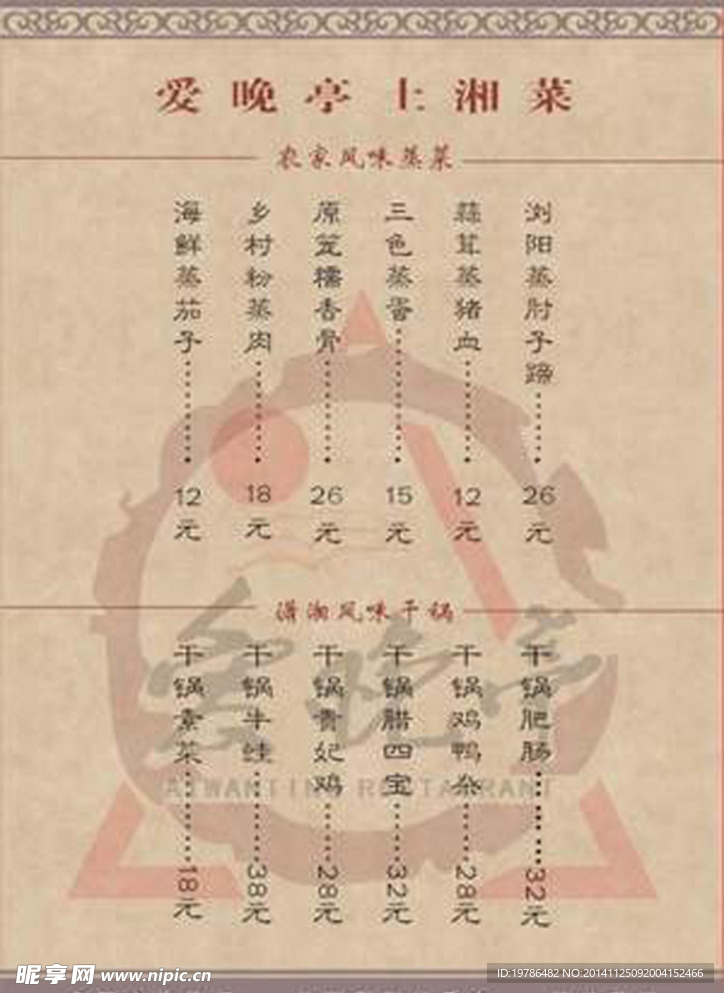 爱晚亭上湘菜
农家风味蒸菜
浏阳蒸肘子蹄 26元
蒜茸蒸猪血 12元
三色蒸蛋 15元
原笼糯香骨 26元
乡村粉蒸肉 18元
海鲜蒸茄子 12元
潇湘风味干锅
干锅肥肠 32元
干锅鸡鸭杂 28元
干锅腊四宝 32元
干锅贵妃鸡 28元
干锅牛蛙 38元
干锅素菜 18元
爱晚亭
AIWANTING RESTAURANT
昵享网 www.nipic.cn
ID:19786482 NO:20141125092004152466